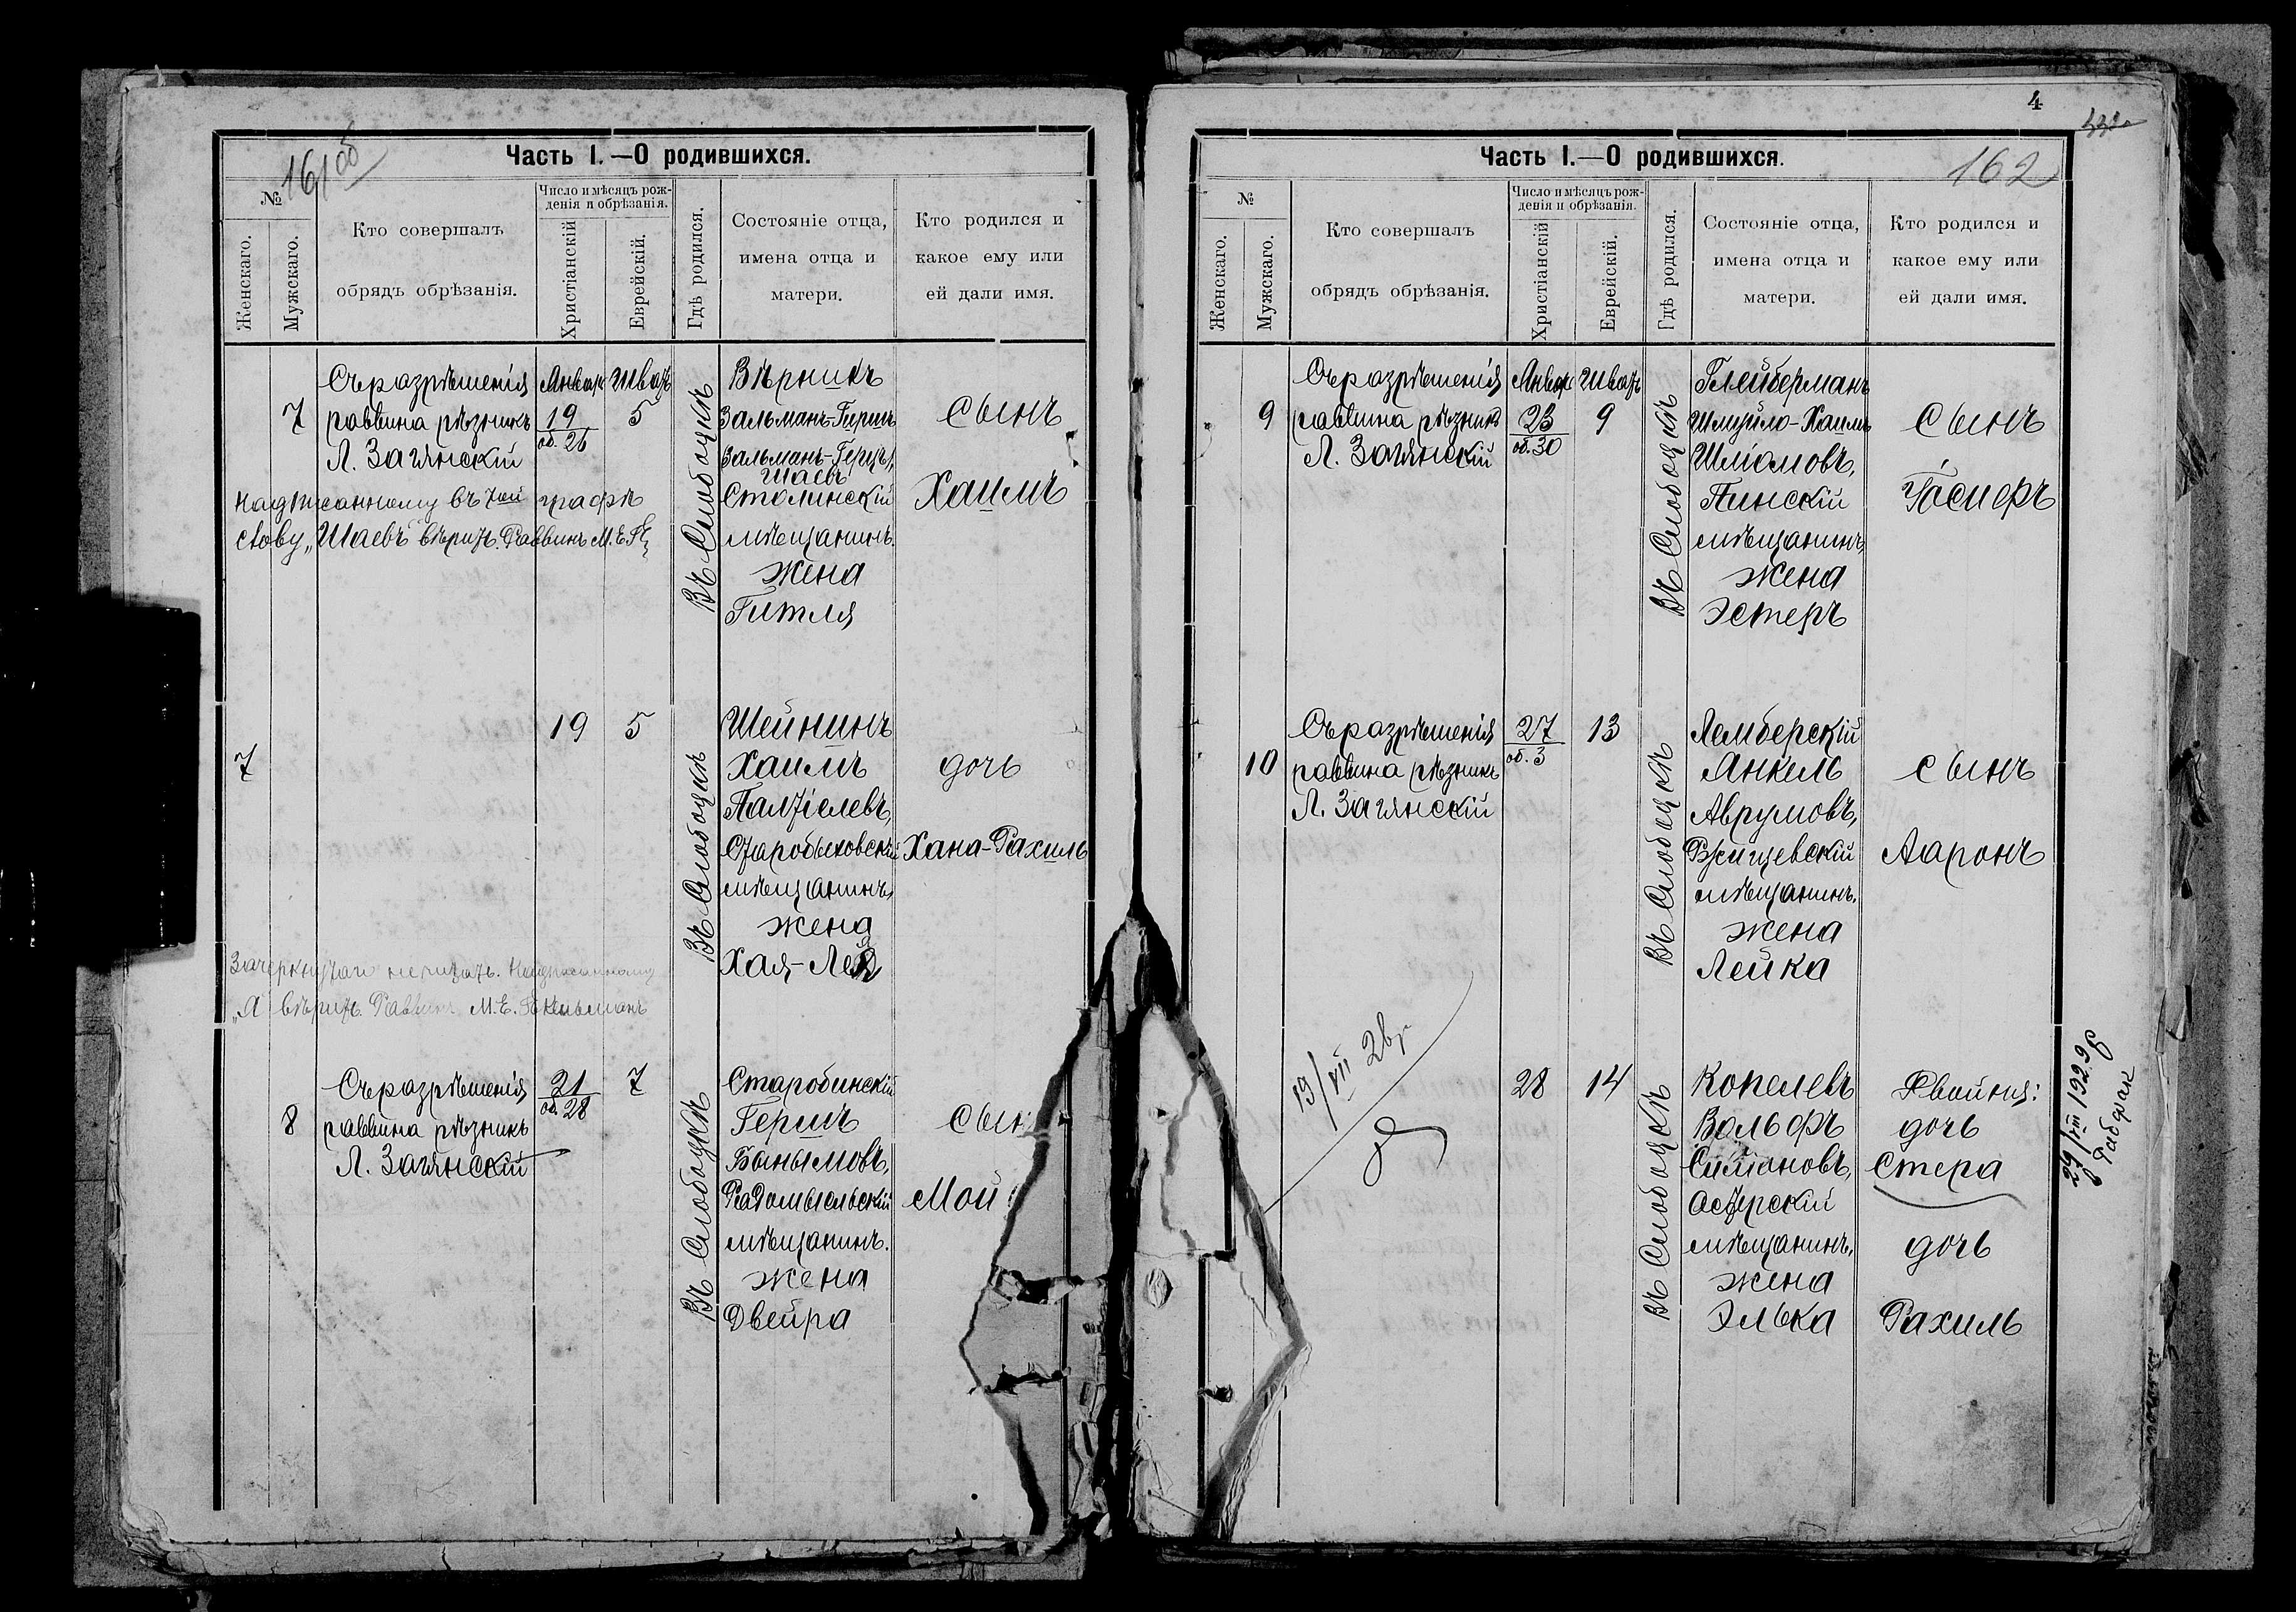 161 об
Часть I.—О родившихся.
№
Женскаго.
Мужскаго.
Кто совершалъ
обрядъ обрѣзанія.
Число и мѣсяцъ рож-
денія и обрѣзанія.
Христіанскій
Еврейскій.
Гдѣ родился.
Состояніе отца,
имена отца и
матери.
Кто родился и
какое ему или
ей дали имя.
7
Съ разрѣшенія
раввина рѣзникъ
Л. Загянскій
Январ
19
об. 26
Шватъ
5
Въ Слободкѣ
Вѣрникъ
Зальманъ-Гершъ
Зальманъ-Герцъ
Шаевъ
Столинскій
мѣщанинъ.
жена
Гитля
сынъ
Хаимъ
надписанному въ 7ой графѣ
слову „Шаевъ" вѣрить. Раввинъ М. Е.
7
19
5
Въ Слободкѣ
Шейнинъ
Хаимъ
Палтіелевъ,
Старобыховскій
мѣщанинъ,
жена
Хая-Лея
дочь
Хана-Рахиль
Зачеркнутаго не читать. Надписанному
„Я вѣрить. Раввинъ М. Е.
8
Съ разрѣшенія
раввина рѣзникъ
Л. Загянскій
21
об. 28
7
Въ Слободкѣ
Старобинскій
Гершъ
Бонымовъ,
Радомысльскій
мѣщанинъ.
жена
Двейра
сын
Мой
4
162
Часть I.—О родившихся.
№
Женскаго.
Мужскаго.
Кто совершалъ
обрядъ обрѣзанія.
Число и мѣсяцъ рож-
денія и обрѣзанія.
Христіанскій
Еврейскій.
Гдѣ родился.
Состояніе отца,
имена отца и
матери.
Кто родился и
какое ему или
ей дали имя.
9
Съ разрѣшенія
раввина рѣзникъ
Л. Загянскій
Январ
23
об. 30
Шватъ
9
Въ Слободкѣ
Глейберманъ
Шмуйло-Хаимъ
Шліомовъ,
Пинскій
мѣщанинъ,
жена
Эстеръ
сынъ
Іосифъ
10
Съ разрѣшенія
раввина рѣзникъ
Л. Загянскій
27
об. 3
13
Въ Слободкѣ
Лемберскій
Янкель
Аврумовъ,
Ржищевскій
мѣщанинъ.
жена
Лейка
сынъ
Ааронъ
19/VII 26г
28
14
Въ Слободкѣ
Копелевъ
Вольфъ
Симоновъ,
Остерскій
мѣщанинъ,
жена
Элька
Двойня:
дочь
Стера
дочь
Рахиль
29/VIII 1929